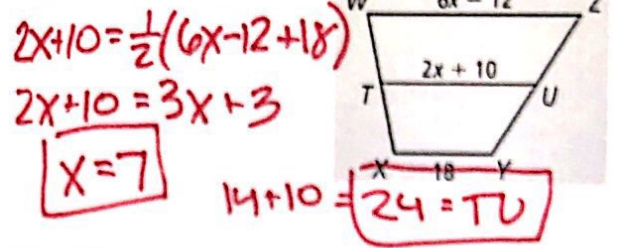 2x+10=½(6x-12+18)
2x+10=3x+3
x=7
14+10=24=TU
W 6x - 12 Z
T 2x + 10 U
X 18 Y